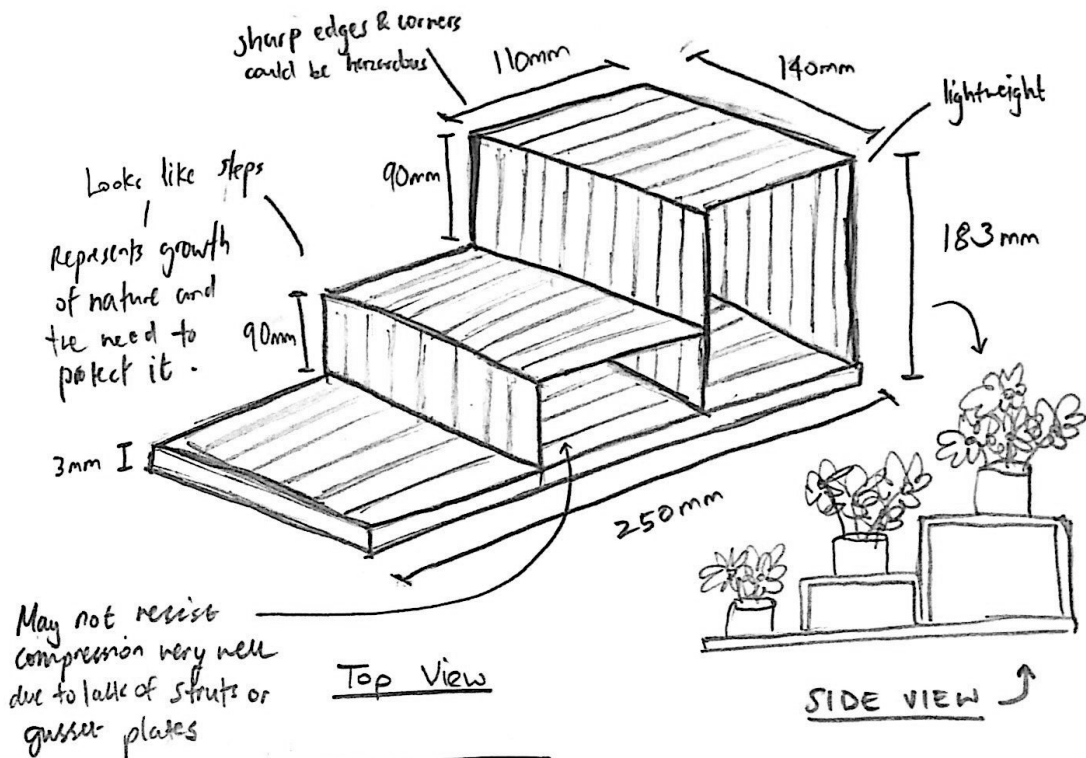 sharp edges & corners
could be hazardous
110mm
140mm
lightweight
90mm
Looks like steps
Represents growth
of nature and
the need to
protect it.
183mm
90mm
3mm
250mm
May not resist
compression very well
due to lack of struts or
gusset plates
Top View
SIDE VIEW